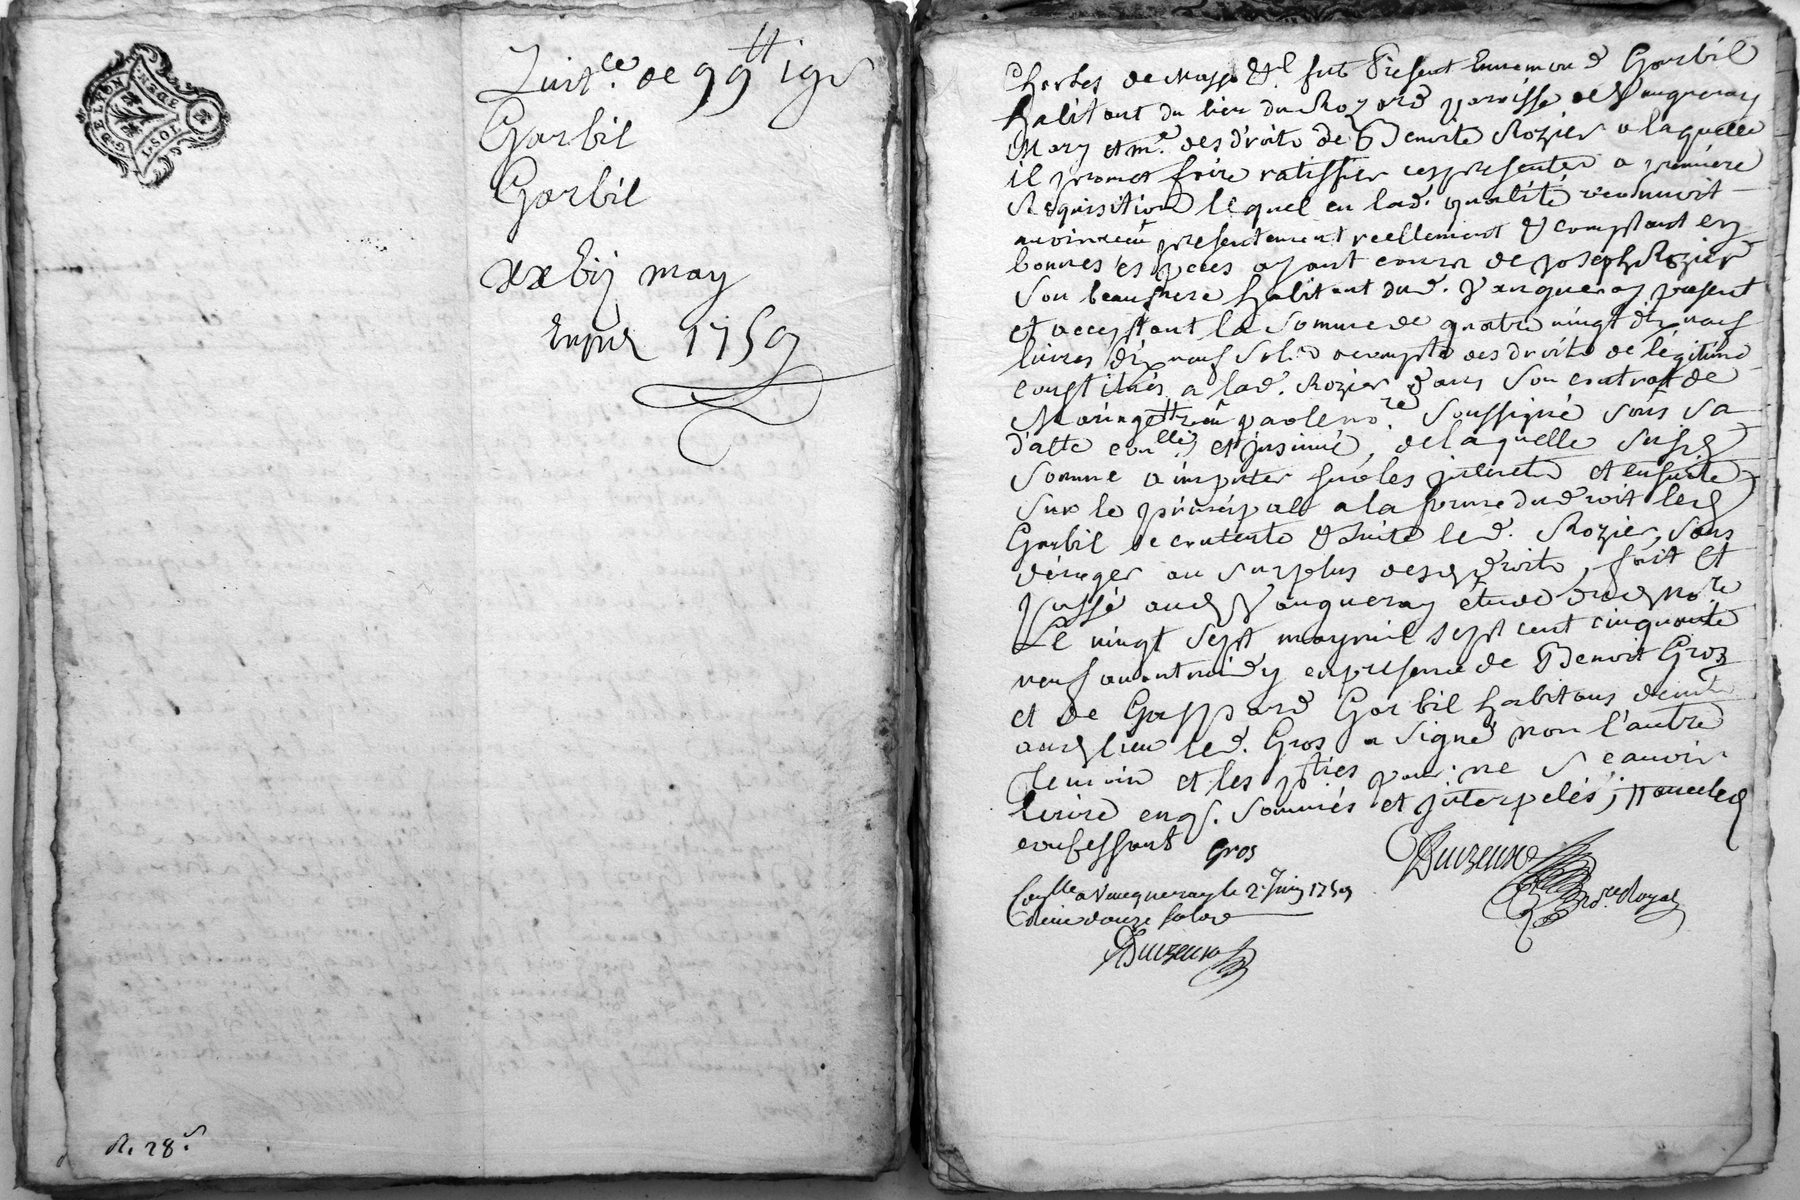 G. DE LYON
1 SOL
Quitce. de 99tt 19s
Garbil
Garbil
xxbij may
1759
R. 28s
fut Présent Ennemond Garbil
habitant du lieu du Rozard parroisse de Vaugneray
Mary et me. des droits de Benoite Rozier a laquelle
il promet faire ratiffier ces presentes a premiere
Requisition lequel en lad. qualité reconnoit
presentement reellement & comptant en
bonnes especes ayant cours de Joseph Rozier
son beaufrere habitant dud. Vaugneray present
et acceptant la somme de quatre vingt dix neuf
livres dix neuf sols a compte des droits de légitime
constitués a lad. Rozier dans son contrat de
Mariage par le nore. soussigné sous sa
datte conllé et insinué, de laquelle susd
somme a imputer sur les interets et ensuite
sur le principal a la forme du droit led
Garbil se contente & quite led. Rozier, sans
déroger au surplus desd droits, fait et
passé aud Vaugneray étude dud nore
Le vingt sept may mil sept cent cinquante
neuf avant midy en presence de Benoit Gros
et de Gaspard Garbil habitans
aud lieu led. Gros a signé non l'autre
temoin et les pties pour ne sçauoir
écrire enqs. sommés et interpelés,
confessant
Gros
nore Royal
Conlle a Vaugneray le 2e. Juin 1759